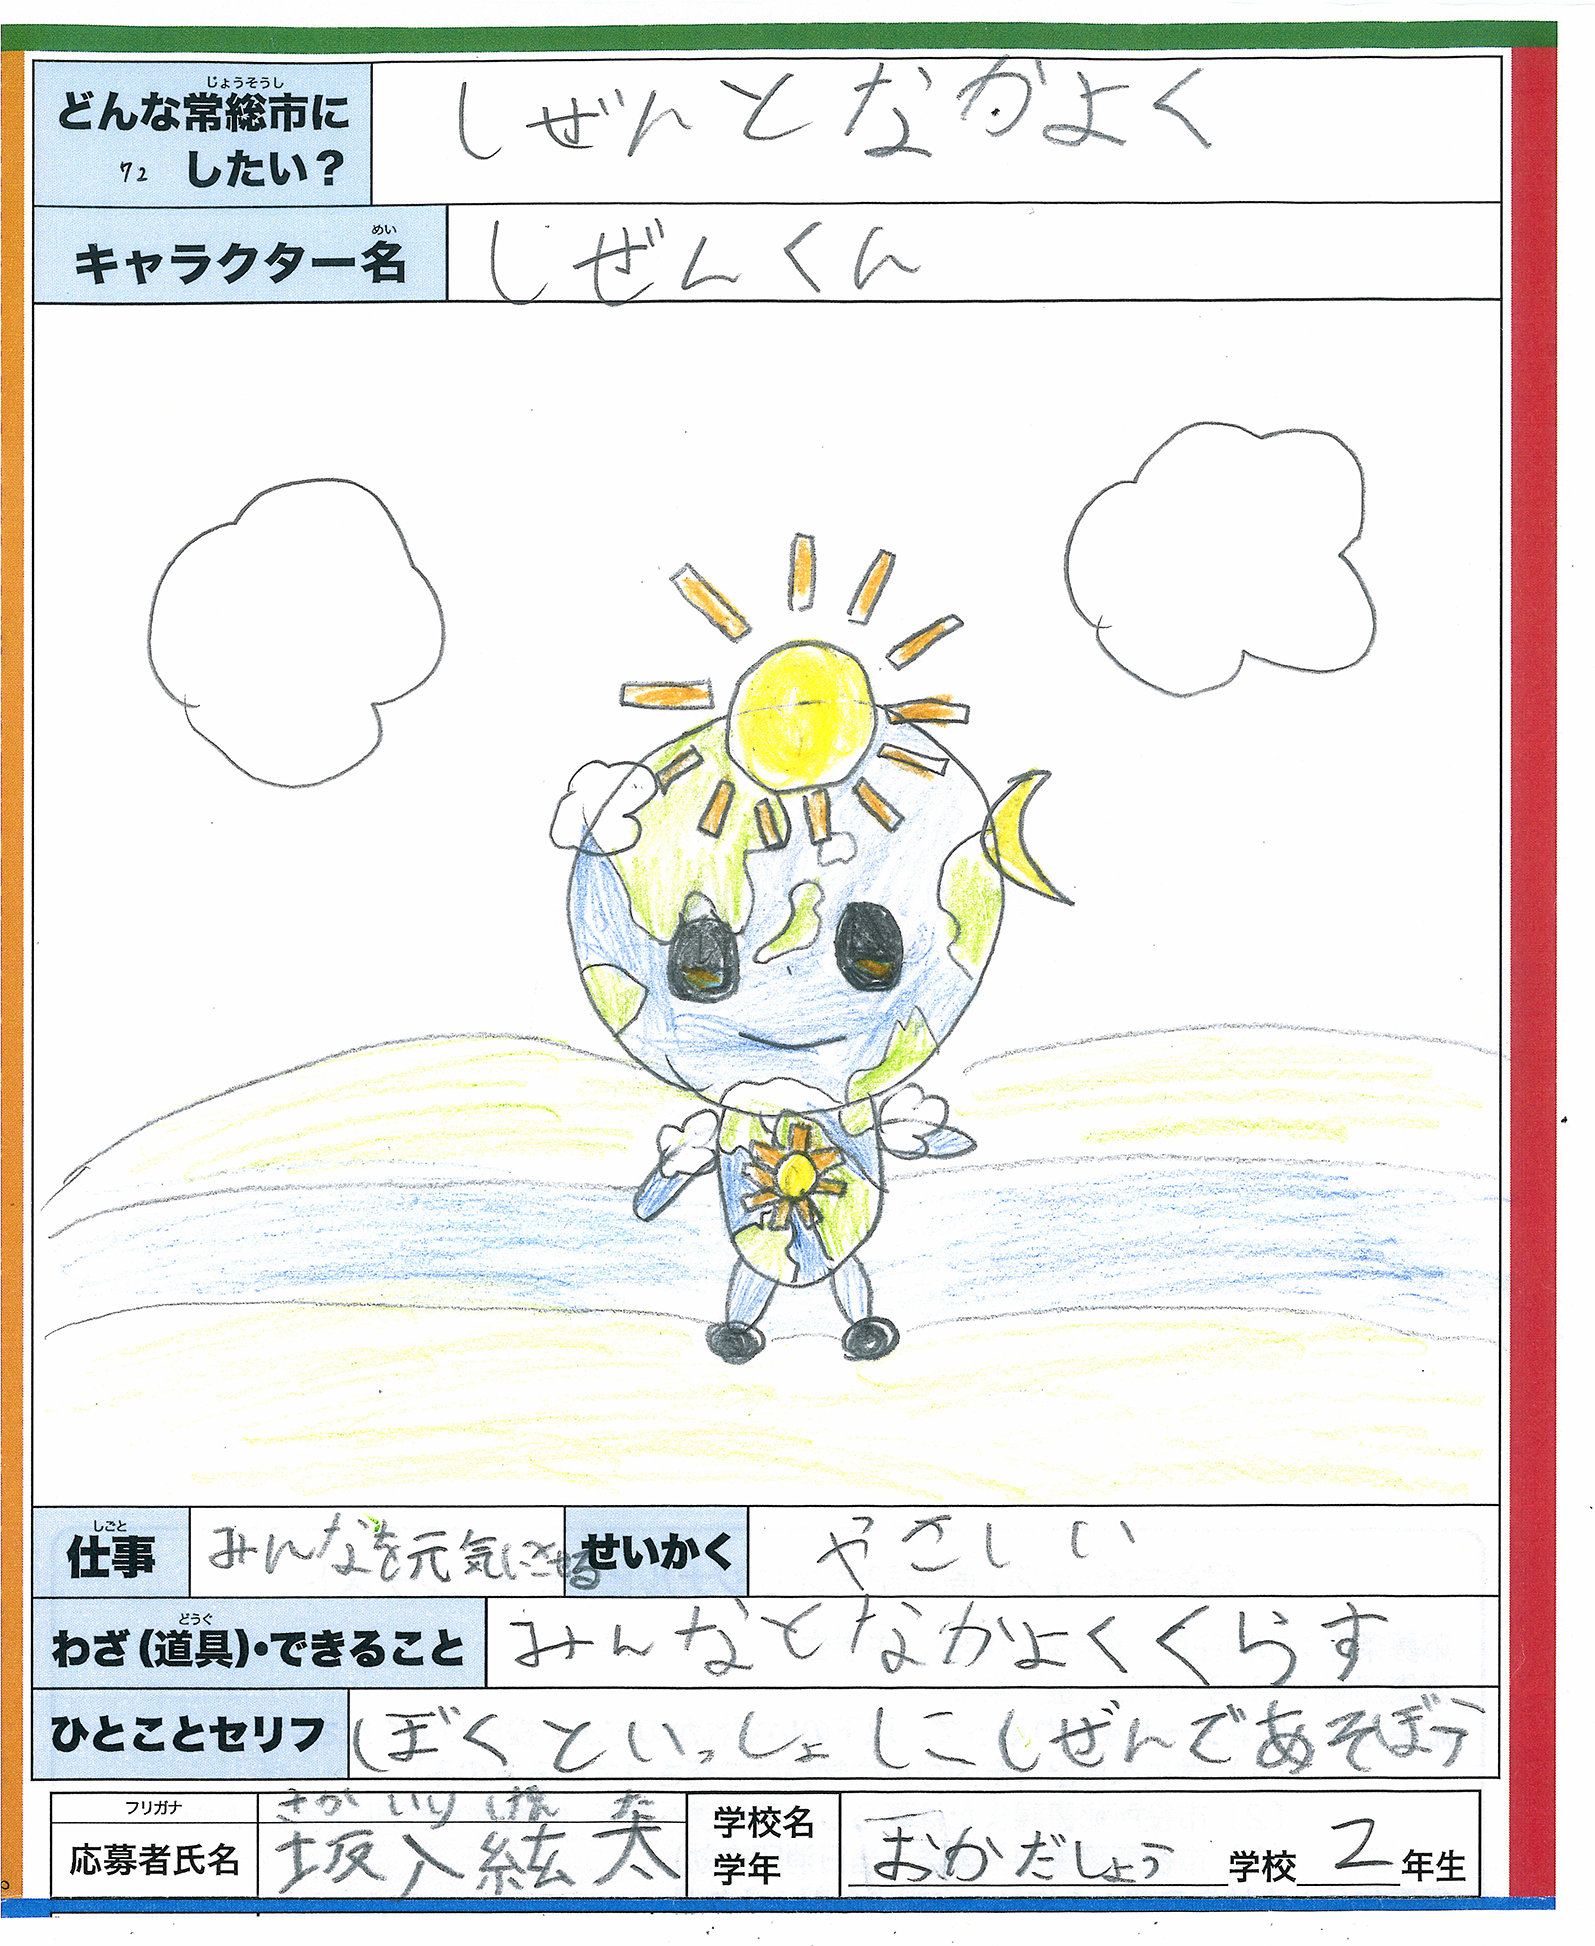 じょうそうし
どんな常総市に
したい？
72
しぜんとなかよく
めい
キャラクター名
しぜんくん
しごと
仕事
みんなを元気にさせる
せいかく
やさしい
どうぐ
わざ(道具)・できること
みんなとなかよくくらす
ひとことセリフ
ぼくといっしょしにしぜんであそぼう
フリガナ
さかいり げんた
応募者氏名
坂入絃太
学校名
学年
おかだしょう学校2年生